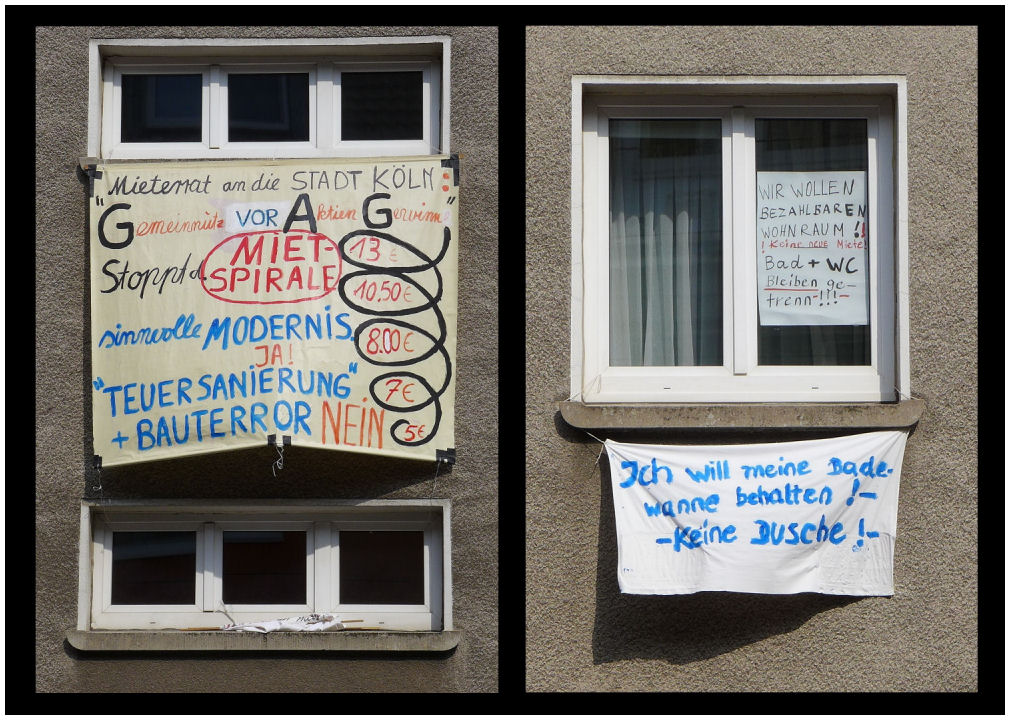 Mieterrat an die STADT KÖLN:
"Gemeinnutz VOR Aktien Gewinne"
Stoppt d. MIET-
SPIRALE
13 €
10.50 €
8.00 €
7 €
5 €
sinnvolle MODERNiS.
JA!
"TEUERSANiERUNG"
+ BAUTERROR NEiN
WIR WOLLEN
BEZAHLBAREN
WOHNRAUM !!
! Keine neue Miete!
Bad + WC
Bleiben ge-
trenn-!!!-
Ich will meine Bade-
wanne behalten !-
-Keine DUSche !-